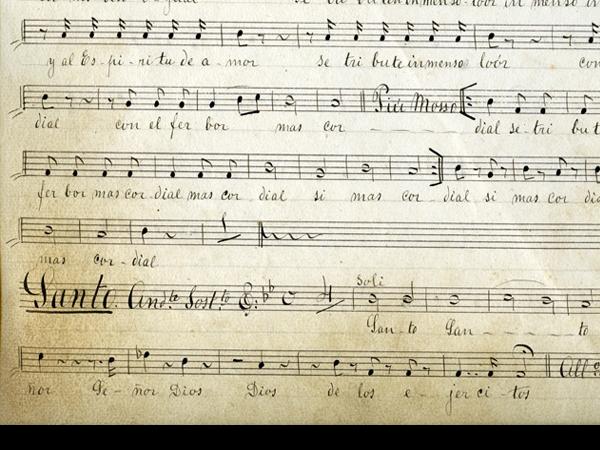 se tri bu ten inmenso loor in menso in
y al Es-pi-ri tu de a-mor se tri bute inmenso loór con
Più Mosso
dial con el fer bor mas cor - - - dial se-tri but
fer bor mas cor-dial mas cor dial si mas cor-dial si mas cor dia
mas cor-dial
Santo. And.te Sost.to 4 Soli
San-to San - - - to
All.o
ñor Se-ñor Dios Dios de los e-jer ci-tos